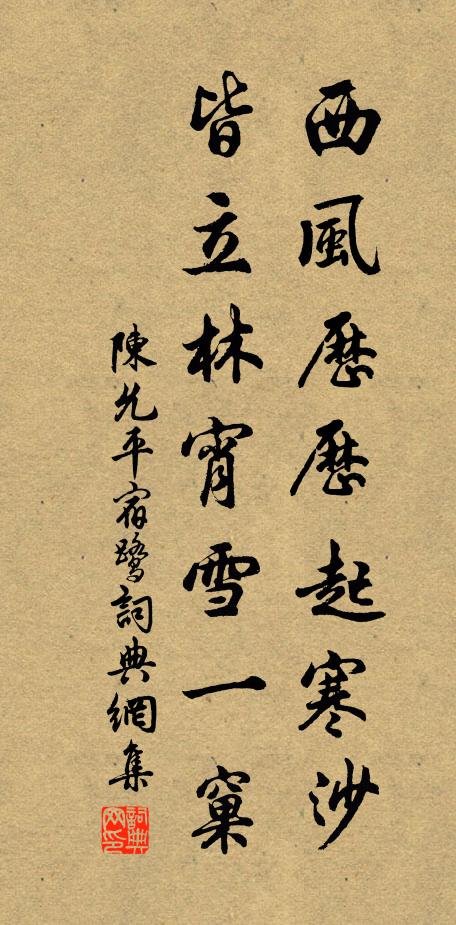 西風歷歷起寒沙
皆立林宵雪一窠
陳允平宿鷺詞典網集
詞典网印